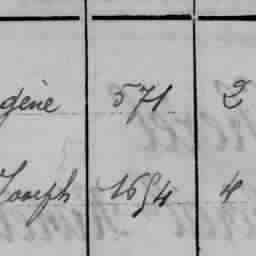 gène 571 2
Joseph 1694 4